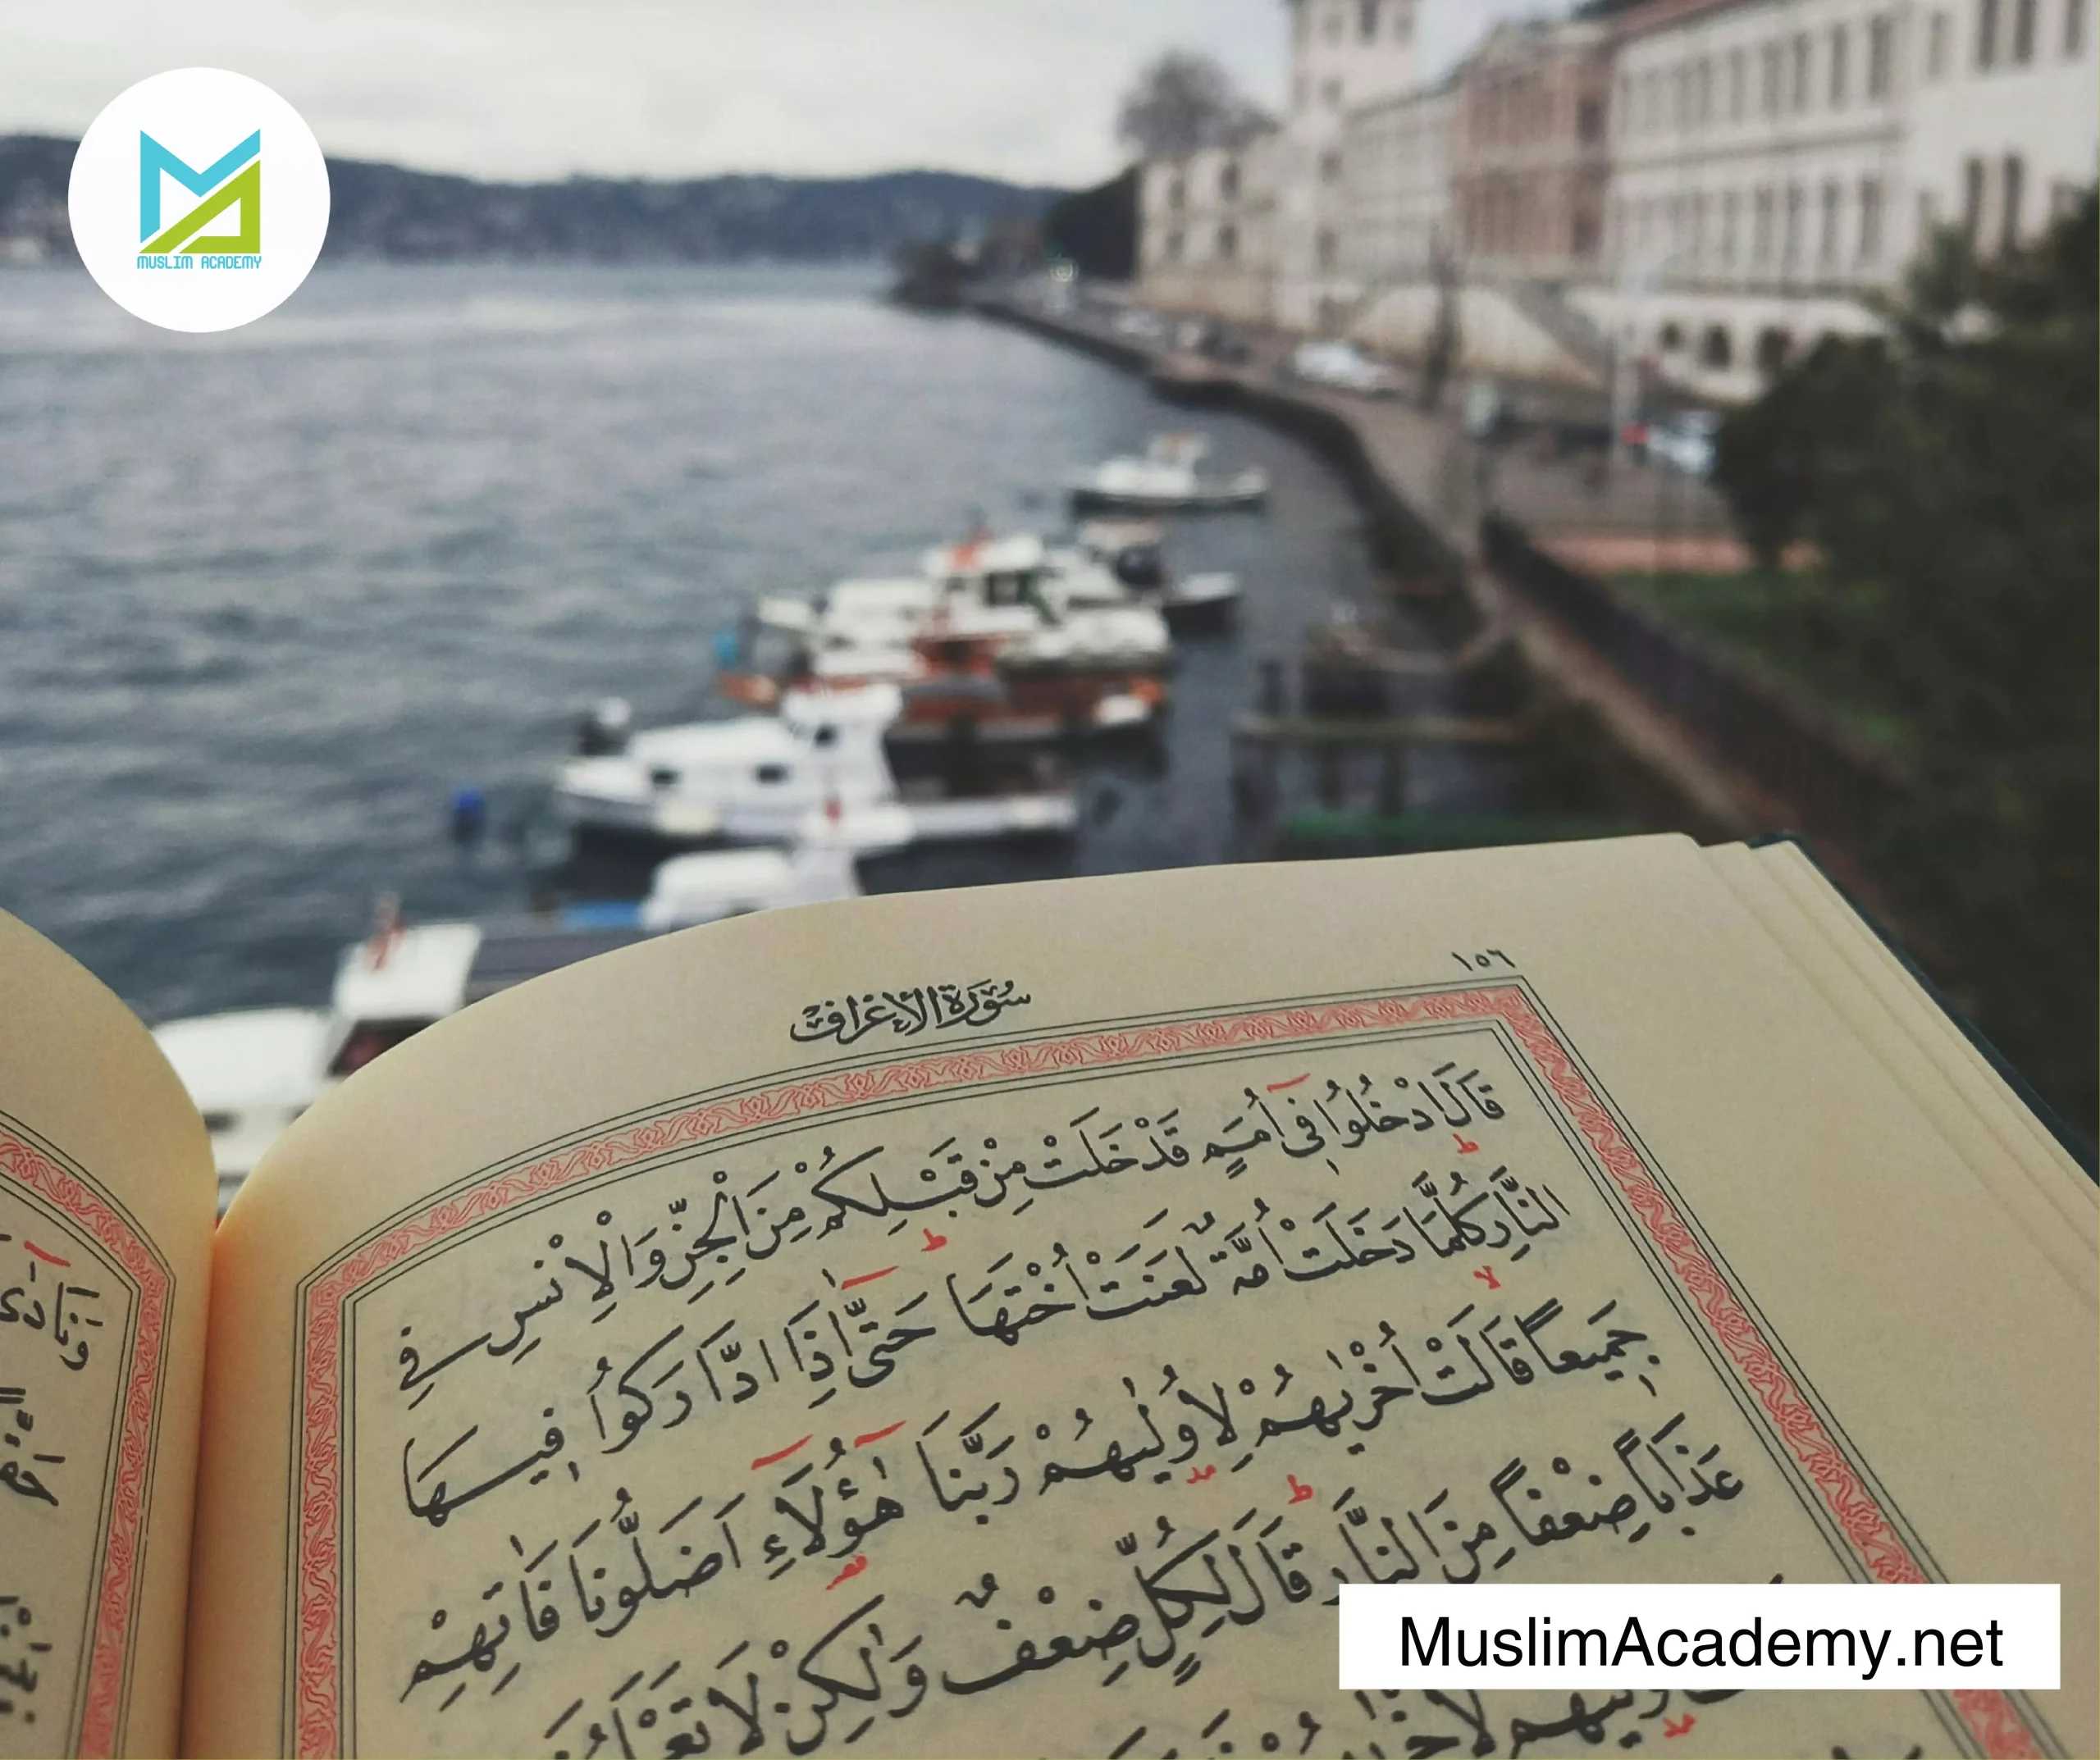 MUSLIM ACADEMY
١٥٦
سُورَةُ الْاَعْرَافِ
قَالَ ادْخُلُوا فٖٓى اُمَمٍ قَدْ خَلَتْ مِنْ قَبْلِكُمْ مِنَ الْجِنِّ وَالْاِنْسِ فِي
النَّارِ كُلَّمَا دَخَلَتْ اُمَّةٌ لَعَنَتْ اُخْتَهَا حَتّٰٓى اِذَا ادَّارَكُوا فٖيهَا
جَمٖيعًا قَالَتْ اُخْرٰيهُمْ لِاُولٰيهُمْ رَبَّنَا هٰٓؤُلَٓاءِ اَضَلُّونَا فَاٰتِهِمْ
عَذَابًا ضِعْفًا مِنَ النَّارِ قَالَ لِكُلٍّ ضِعْفٌ وَلٰكِنْ لَا
MuslimAcademy.net